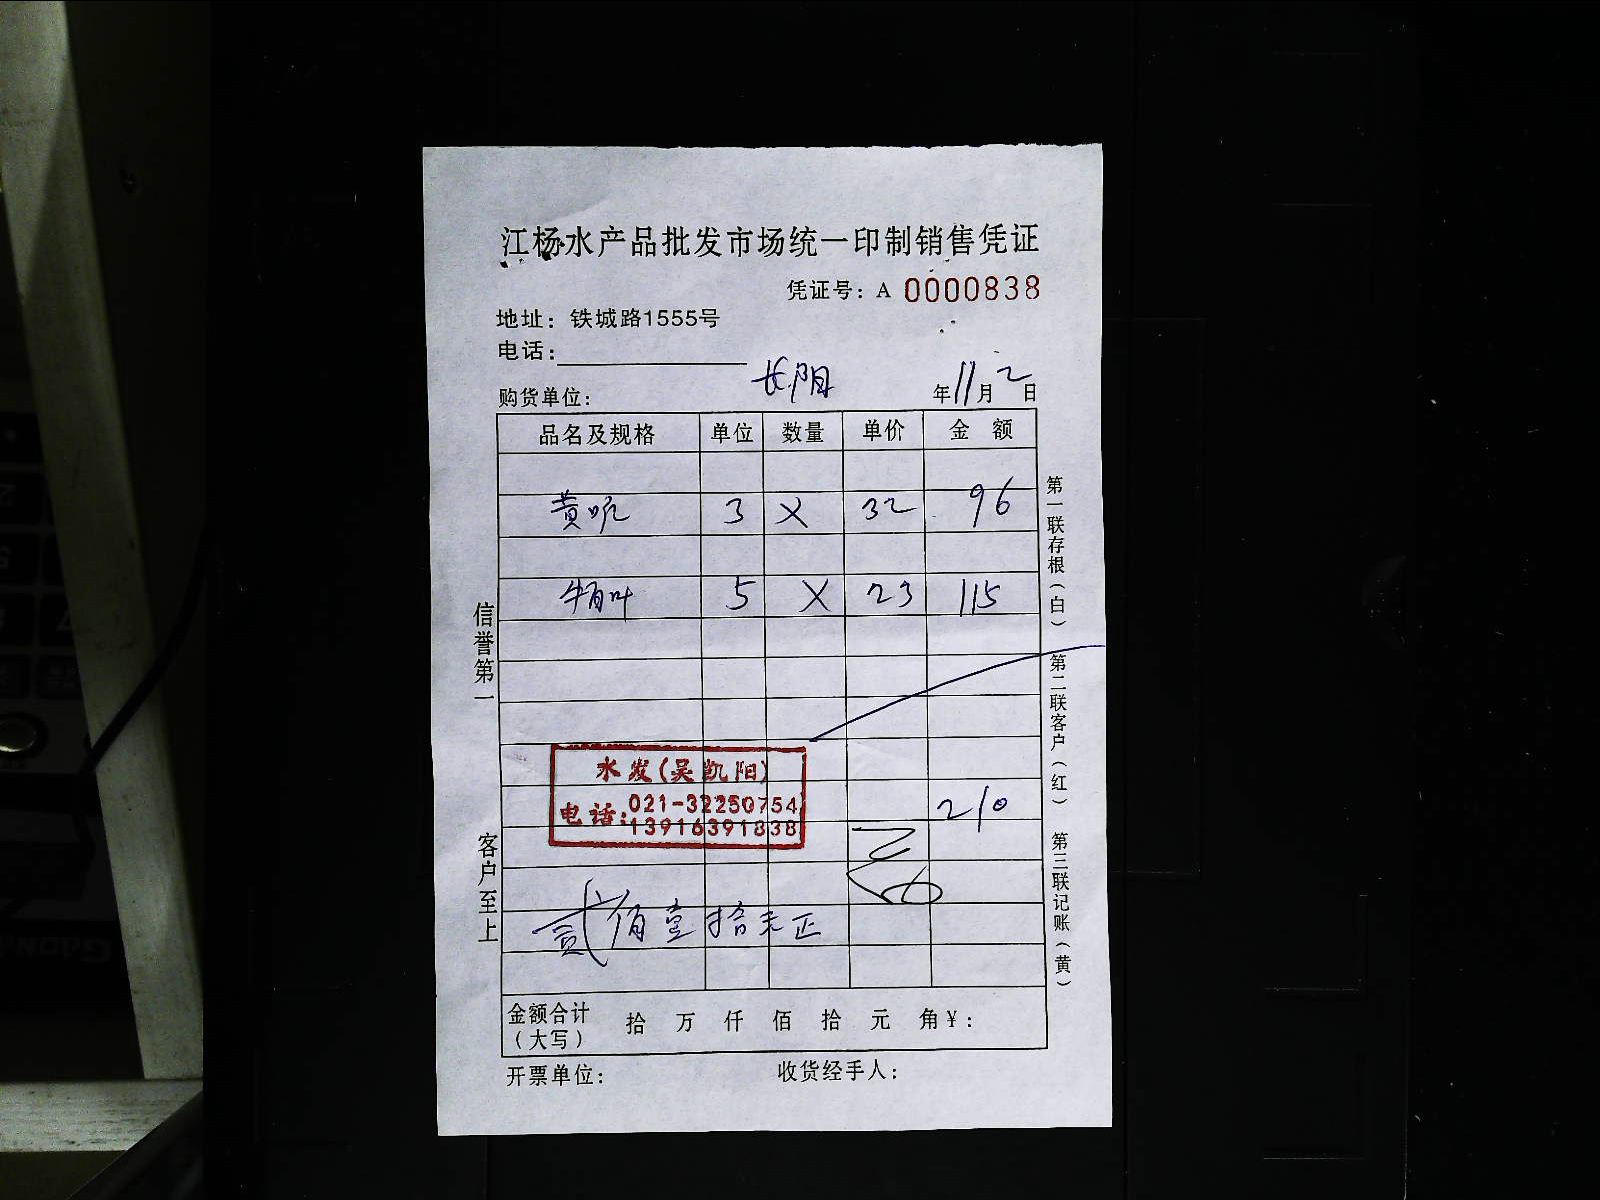 江杨水产品批发市场统一印制销售凭证
凭证号：A 0000838
地址：铁城路1555号
电话：
购货单位： 长阳 年11月2日
品名及规格 单位 数量 单价 金额
黄 3 X 32 96
牛肚叶 5 X 23 115
水发(吴凯阳)
电话：021-32250754
13916391838
210
贰佰壹拾元正
金额合计（大写） 拾 万 仟 佰 拾 元 角¥：
开票单位： 收货经手人：
信誉第一
客户至上
第一联存根（白）
第二联客户（红）
第三联记账（黄）